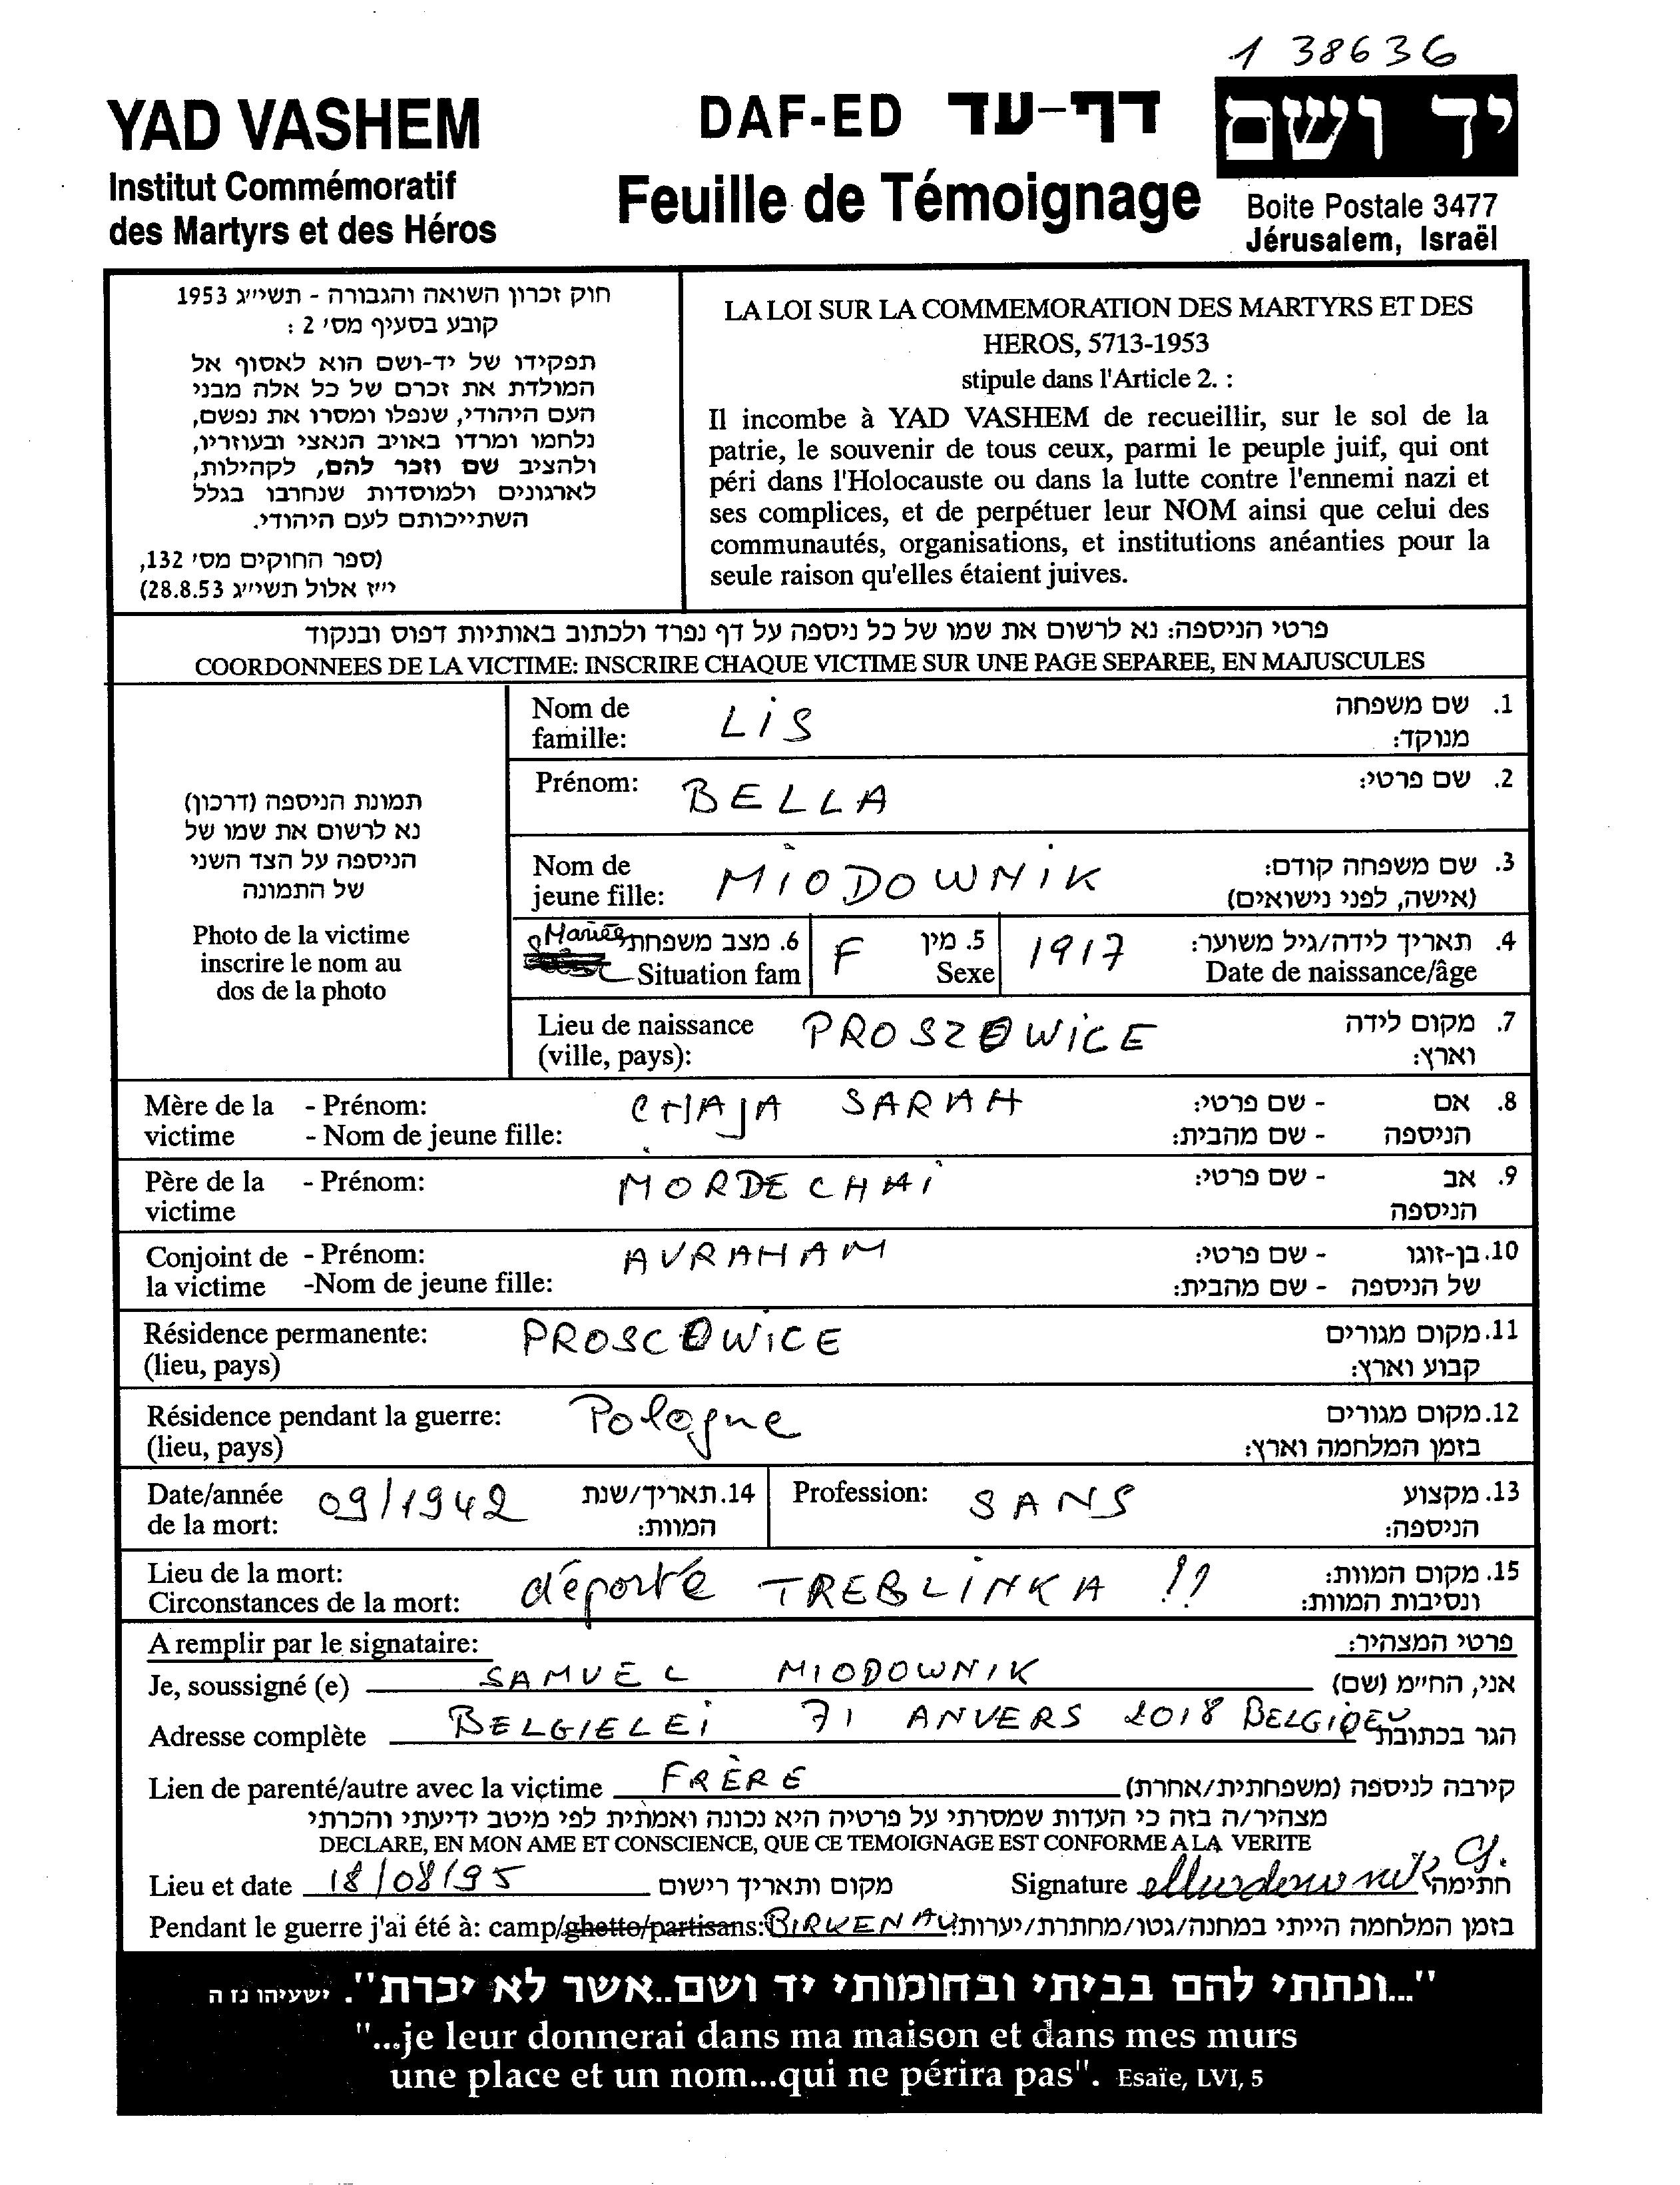 1 38636
YAD VASHEM
Institut Commémoratif
des Martyrs et des Héros
DAF-ED דף-עד
Feuille de Témoignage
יד ושם
Boite Postale 3477
Jérusalem, Israël
חוק זכרון השואה והגבורה - תשי״ג 1953
קובע בסעיף מס׳ 2 :
תפקידו של יד-ושם הוא לאסוף אל
המולדת את זכרם של כל אלה מבני
העם היהודי, שנפלו ומסרו את נפשם,
נלחמו ומרדו באויב הנאצי ובעוזריו,
ולהציב שם וזכר להם, לקהילות,
לארגונים ולמוסדות שנחרבו בגלל
השתייכותם לעם היהודי.
(ספר החוקים מס׳ 132,
י״ז אלול תשי״ג 28.8.53)
LA LOI SUR LA COMMEMORATION DES MARTYRS ET DES
HEROS, 5713-1953
stipule dans l'Article 2. :
Il incombe à YAD VASHEM de recueillir, sur le sol de la
patrie, le souvenir de tous ceux, parmi le peuple juif, qui ont
péri dans l'Holocauste ou dans la lutte contre l'ennemi nazi et
ses complices, et de perpétuer leur NOM ainsi que celui des
communautés, organisations, et institutions anéanties pour la
seule raison qu'elles étaient juives.
פרטי הניספה: נא לרשום את שמו של כל ניספה על דף נפרד ולכתוב באותיות דפוס ובנקוד
COORDONNEES DE LA VICTIME: INSCRIRE CHAQUE VICTIME SUR UNE PAGE SEPAREE, EN MAJUSCULES
תמונת הניספה (דרכון)
נא לרשום את שמו של
הניספה על הצד השני
של התמונה
Photo de la victime
inscrire le nom au
dos de la photo
Nom de LiS 1. שם משפחה
famille: מנוקד:
Prénom: BELLA 2. שם פרטי:
Nom de MiODOWNiK 3. שם משפחה קודם:
jeune fille: (אישה, לפני נישואים)
Mariée 6. מצב משפחתי F 5. מין 1917 4. תאריך לידה/גיל משוער:
Situation fam Sexe Date de naissance/âge
Lieu de naissance PROSZOWiCE 7. מקום לידה
(ville, pays): וארץ:
Mère de la - Prénom: CHAJA SARAH 8. אם - שם פרטי:
victime - Nom de jeune fille: הניספה - שם מהבית:
Père de la - Prénom: MORDECHAi 9. אב - שם פרטי:
victime הניספה
Conjoint de - Prénom: AVRAHAM 10. בן-זוגו - שם פרטי:
la victime -Nom de jeune fille: של הניספה - שם מהבית:
Résidence permanente: PROSCOWiCE 11. מקום מגורים
(lieu, pays) קבוע וארץ:
Résidence pendant la guerre: Pologne 12. מקום מגורים
(lieu, pays) בזמן המלחמה וארץ:
Date/année 09/1942 14. תאריך/שנת Profession: SANS 13. מקצוע
de la mort: המוות: הניספה:
Lieu de la mort: déporté TREBLiNKA !! 15. מקום המוות:
Circonstances de la mort: ונסיבות המוות:
A remplir par le signataire: פרטי המצהיר:
Je, soussigné (e) SAMUEL MIODOWNIK אני, החי״מ (שם)
Adresse complète BELGIELEi 71 ANVERS 2018 BELGIQEU הגר בכתובת
Lien de parenté/autre avec la victime FRÈRE קירבה לניספה (משפחתית/אחרת)
מצהיר/ה בזה כי העדות שמסרתי על פרטיה היא נכונה ואמתית לפי מיטב ידיעתי והכרתי
DECLARE, EN MON AME ET CONSCIENCE, QUE CE TEMOIGNAGE EST CONFORME A LA VERITE
Lieu et date 18/08/95 מקום ותאריך רישום Signature חתימה
Pendant le guerre j'ai été à: camp/ghetto/partisans: BIRKENAU בזמן המלחמה הייתי במחנה/גטו/מחתרת/יערות:
"...ונתתי להם בביתי ובחומותי יד ושם..אשר לא יכרת". ישעיהו נז ה
"...je leur donnerai dans ma maison et dans mes murs
une place et un nom...qui ne périra pas". Esaïe, LVI, 5